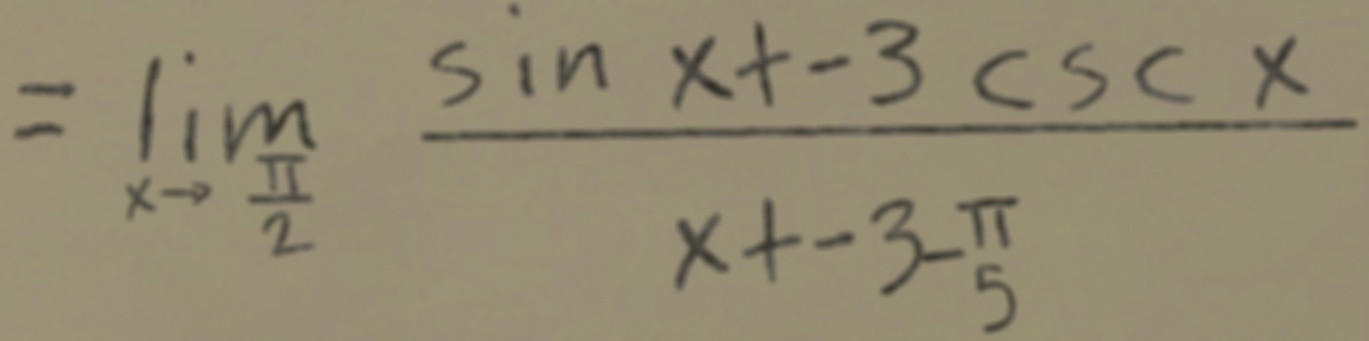 = lim x→π/2 (sin x + -3 csc x)/(x + -3 - π/5)